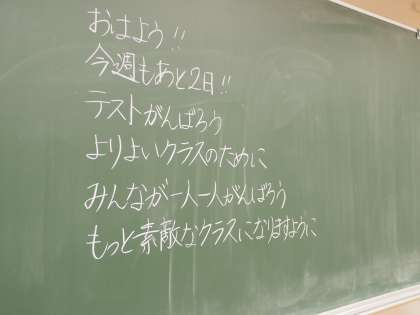 おはよう!!
今週もあと2日!!
テストがんばろう
よりよいクラスのために
みんなが一人一人がんばろう
もっと素敵なクラスになりますように